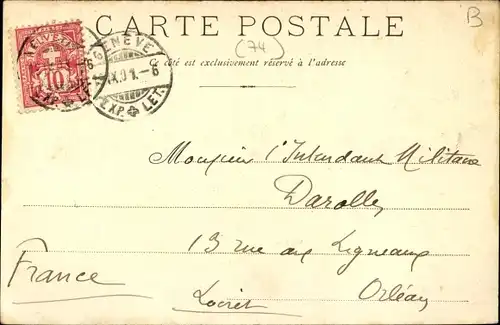 B
CARTE POSTALE
(74)
Ce côté est exclusivement réservé à l'adresse
HELVETIA
10
GENÈVE
IX.01.-6
EXP. LET.
Monsieur l'Intendant Militaire
Darolles
13 rue aux Ligneaux
France
Loiret Orléans